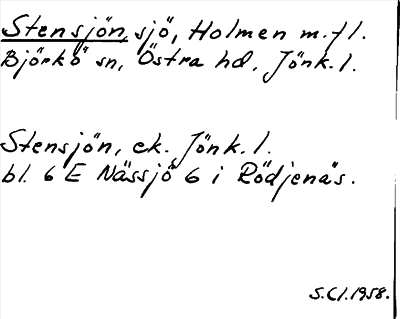 Stensjön, sjö, Holmen m.fl.
Björkö sn, Östra hd. Jönk.l.
Stensjön, ek. Jönk.l.
bl. 6 E Nässjö 6 i Rödjenäs.
S.Cl.1958.